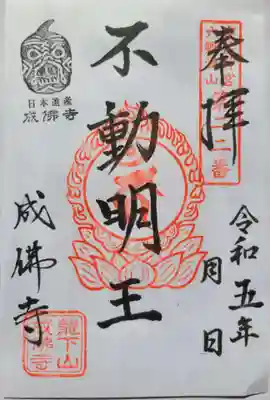 奉拝
不動明王
令和五年
月 日
成佛寺
日本遺産
成佛寺
龍下山
成佛寺